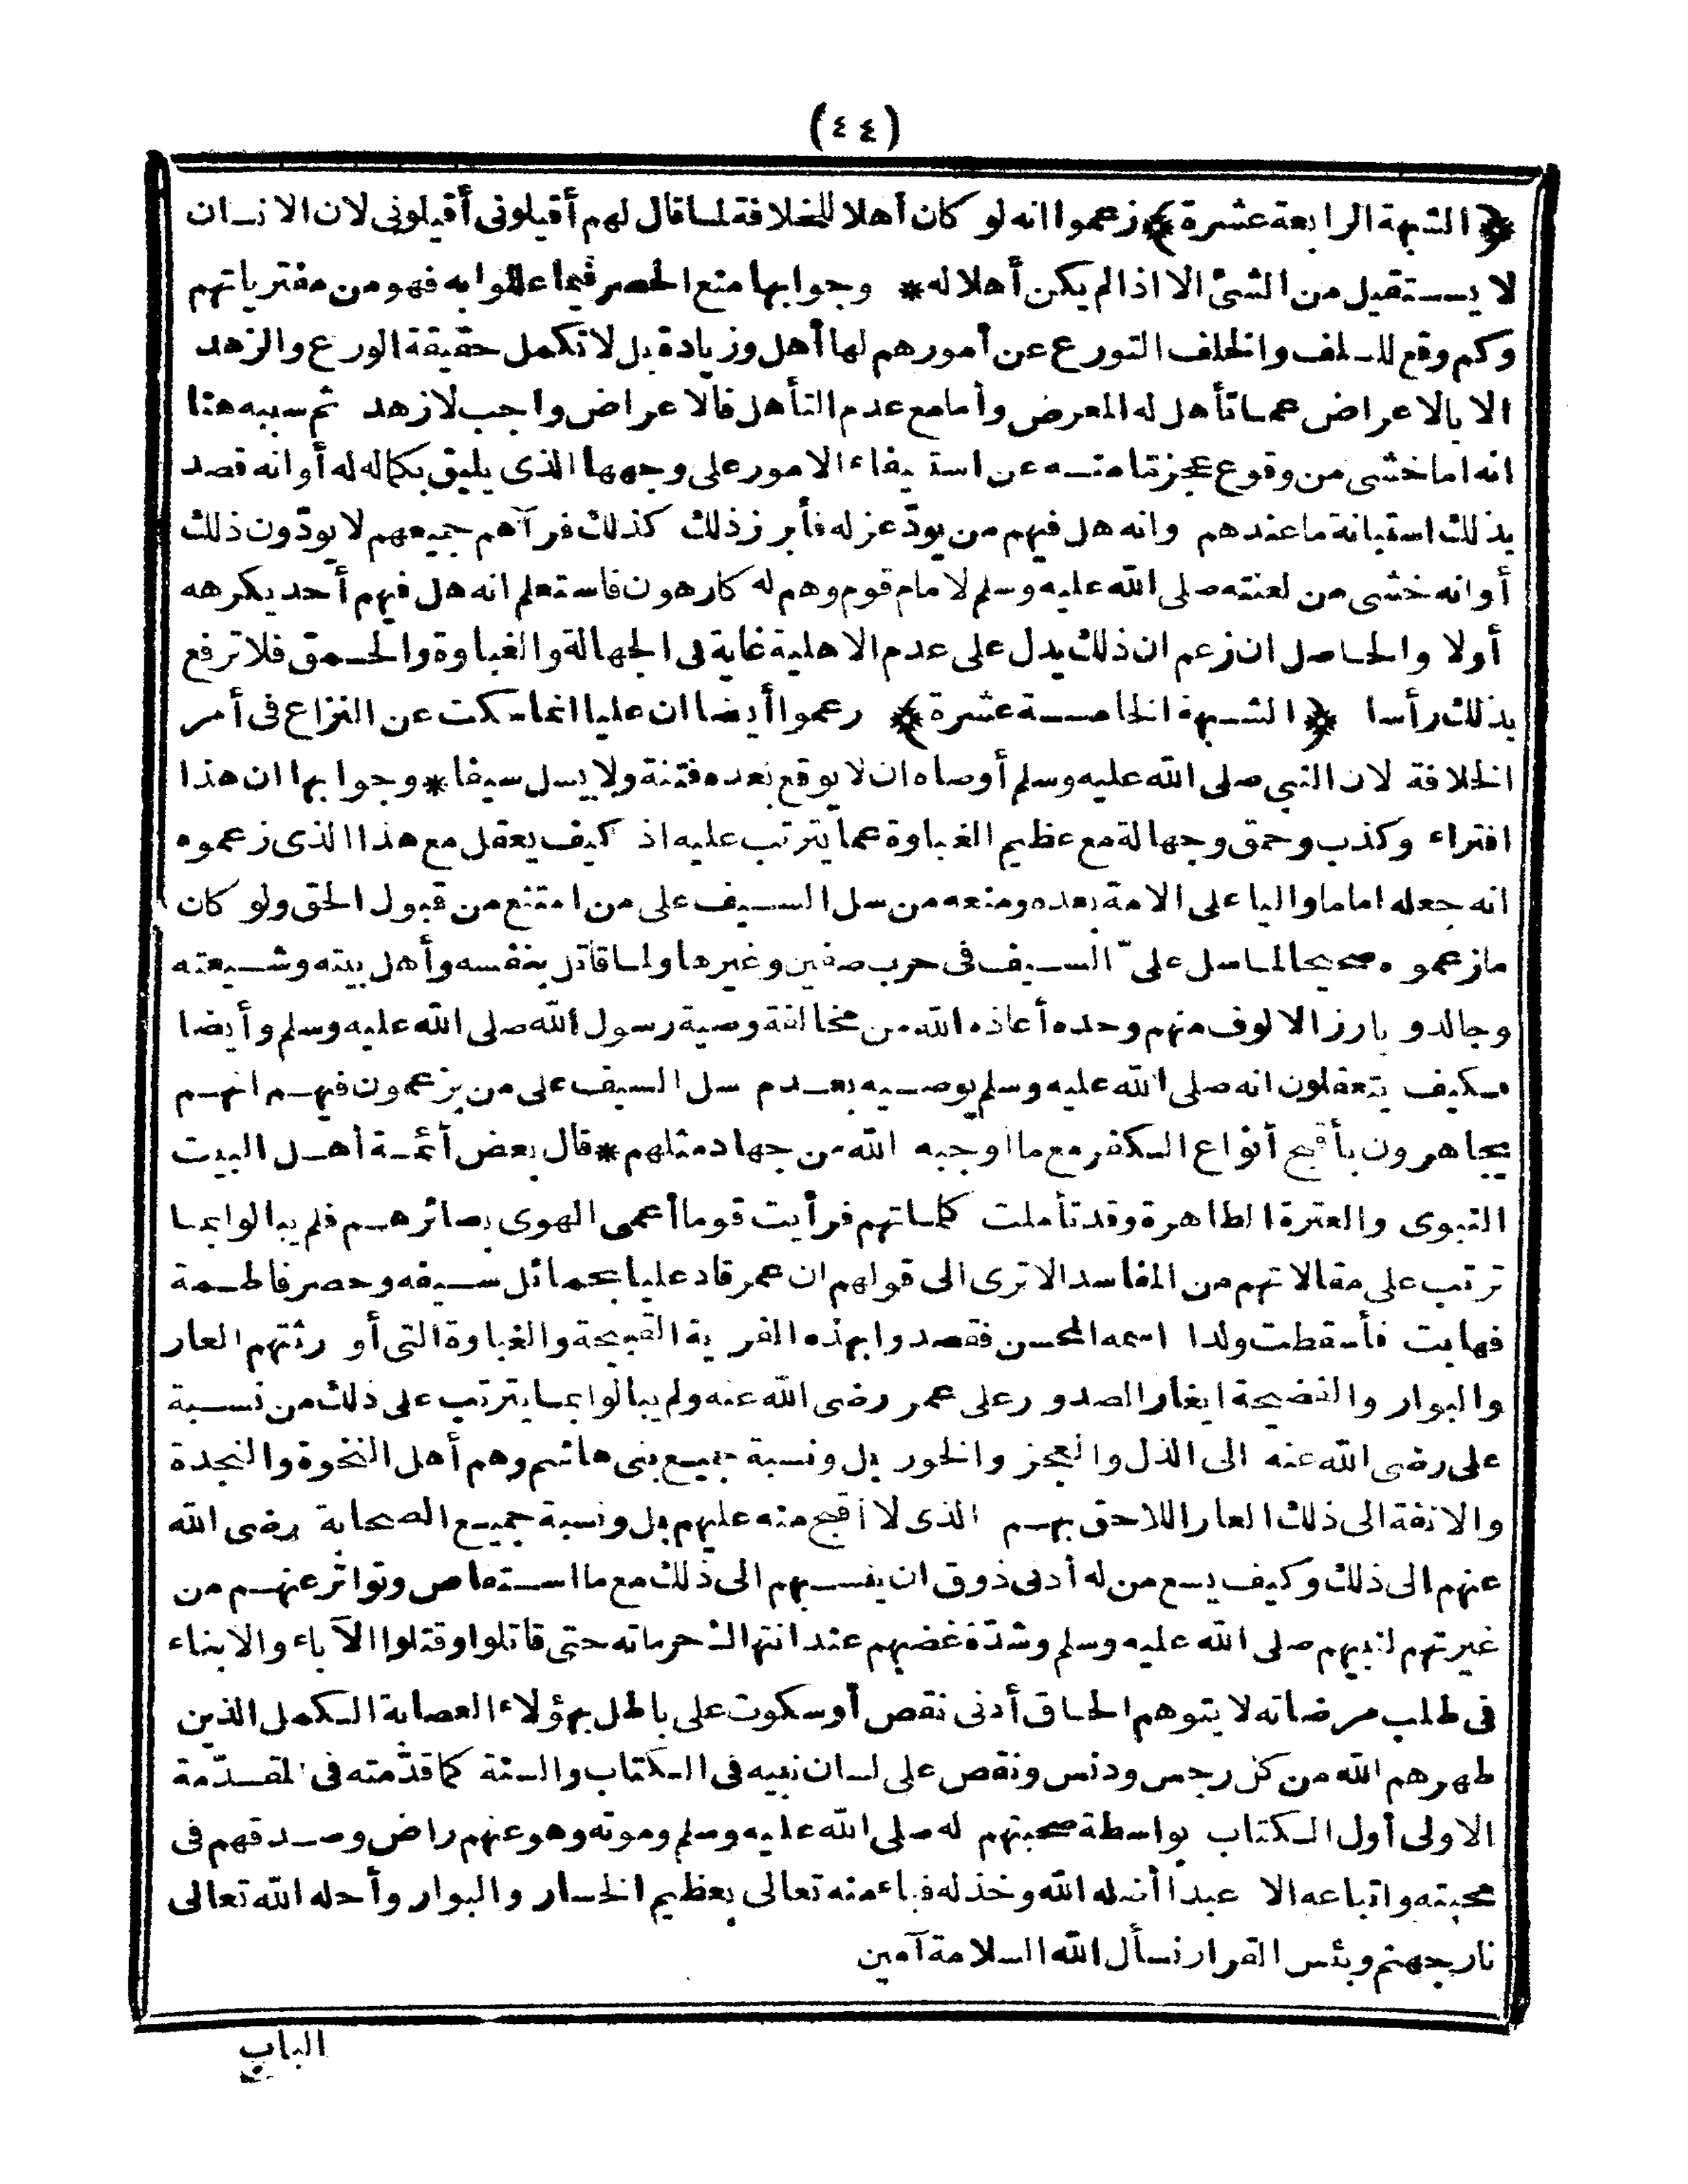 (٤٤)
﴿الشبهة الرابعة عشرة﴾ زعموا انه لو كان أهلا للخلافة لما قال لهم أقيلونى أقيلونى لان الانسان
لا يستقيل من الشئ الا اذا لم يكن أهلا له * وجوابها منع الحصر فيما عللوا به فهو من مفترياتهم
وكم وقع للسلف والخلف التورع عن أمورهم لها أهل وزيادة بل لا تكمل حقيقة الورع والزهد
الا بالاعراض عما تأهل له المعرض وأما مع عدم التأهل فالاعراض واجب لا زهد ثم سببه هنا
انه اما خشى من وقوع عجز ما منه عن استيفاء الامور على وجهها الذى يليق بكماله له أو انه قصد
بذلك استبانة ما عندهم وانه هل فيهم من يودّ عزله فأبرز ذلك كذلك فرآهم جميعهم لا يودّون ذلك
أو انه خشى من لعنته صلى الله عليه وسلم لامام قوم وهم له كارهون فاستعلم انه هل فيهم أحد يكرهه
أولا والحاصل ان زعم ان ذلك يدل على عدم الاهلية غاية فى الجهالة والغباوة والحمق فلا ترفع
بذلك رأسا ﴿الشبهة الخامسة عشرة﴾ زعموا أيضا ان عليا انما سكت عن النزاع فى أمر
الخلافة لان النبى صلى الله عليه وسلم أوصاه ان لا يوقع بعده فتنة ولا يسل سيفا * وجوابها ان هذا
افتراء وكذب وحمق وجهالة مع عظيم الغباوة عما يترتب عليه اذ كيف يعقل مع هذا الذى زعموه
انه جعله اماما واليا على الامة بعده ومنعه من سل السيف على من امتنع من قبول الحق ولو كان
مازعموه صحيحا لما سل علىّ السيف فى حرب صفين وغيرها ولما قاتل بنفسه وأهل بيته وشيعته
وجالد و بارز الالوف منهم وحده أعاذه الله من مخالفة وصية رسول الله صلى الله عليه وسلم وأيضا
فكيف يتعقلون انه صلى الله عليه وسلم يوصيه بعدم سل السيف على من يزعمون فيهم انهم
يجاهرون بأقبح أنواع الكفر مع ما أوجبه الله من جهاد مثلهم * قال بعض أئمة أهل البيت
النبوى والعترة الطاهرة وقد تأملت كلماتهم فرأيت قوما أعمى الهوى بصائرهم فلم يبالوا بما
ترتب على مقالاتهم من المفاسد الا ترى الى قولهم ان عمر قاد عليا بحمائل سيفه وحصر فاطمة
فهابت فأسقطت ولدا اسمه المحسن فقصدوا بهذه الفرية القبيحة والغباوة التى أورثتهم العار
والبوار والفضيحة ايغار الصدور على عمر رضى الله عنه ولم يبالوا بما يترتب على ذلك من نسبة
على رضى الله عنه الى الذل والعجز والخور بل ونسبة جميع بنى هاشم وهم أهل النخوة والنجدة
والانفة الى ذلك العار اللاحق بهم الذى لا أقبح منه عليهم بل ونسبة جميع الصحابة رضى الله
عنهم الى ذلك وكيف يسع من له أدنى ذوق ان ينسبهم الى ذلك مع ما استفاض وتواتر عنهم من
غيرتهم لنبيهم صلى الله عليه وسلم وشدّة غضبهم عند انتهاك حرماته حتى قاتلوا وقتلوا الآباء والابناء
فى طلب مرضاته لا يتوهم الحاق أدنى نقص أو سكوت على باطل بهؤلاء العصابة الكمل الذين
طهرهم الله من كل رجس ودنس ونقص على لسان نبيه فى الكتاب والسنة كما قدّمته فى المقدّمة
الاولى أول الكتاب بواسطة صحبتهم له صلى الله عليه وسلم وموته وهو عنهم راض وصدقهم فى
محبته واتباعه الا عبدا أضله الله وخذله فباء منه تعالى بعظيم الخسار والبوار وأحله الله تعالى
نار جهنم وبئس القرار نسأل الله السلامة آمين
الباب